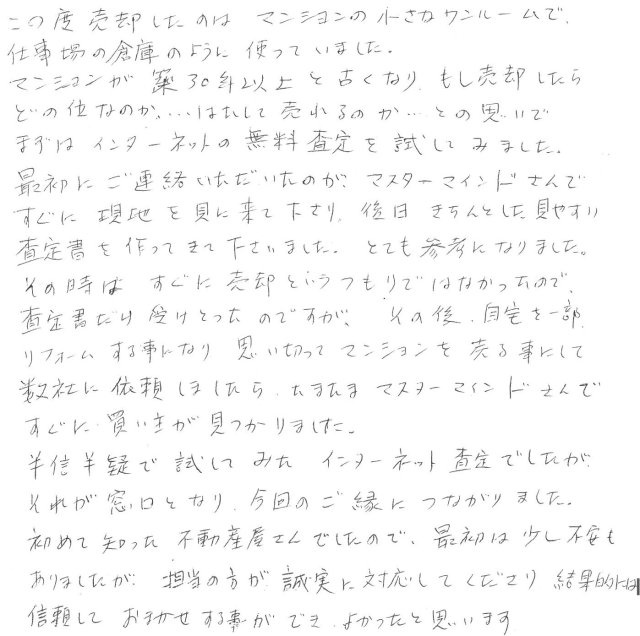 この度 売却したのは マンションの小さなワンルームで、
仕事場の倉庫のように 使っていました。
マンションが 築30年以上と古くなり、もし売却したら
どの位なのか、…はたして 売れるのか… との思いで
まずは インターネットの 無料 査定を 試してみました。
最初に ご連絡いただいたのが、マスターマインドさんで
すぐに 現地を見に来て下さり、後日 きちんとした見やすい
査定書を 作ってきて下さいました。とても参考になりました。
その時は すぐに 売却というつもりではなかったので、
査定書だけ 受けとったのですが、その後、自宅を一部
リフォームする事になり 思い切ってマンションを 売る事にして
数社に 依頼しましたら、たまたま マスターマインドさんで
すぐに 買い主が見つかりました。
半信半疑で 試してみた インターネット査定でしたが、
それが窓口となり、今回のご縁に つながりました。
初めて知った 不動産屋さんでしたので、最初は 少し不安も
ありましたが、担当の方が 誠実に 対応してくださり 結果的には
信頼して おまかせする事ができ、よかったと思います